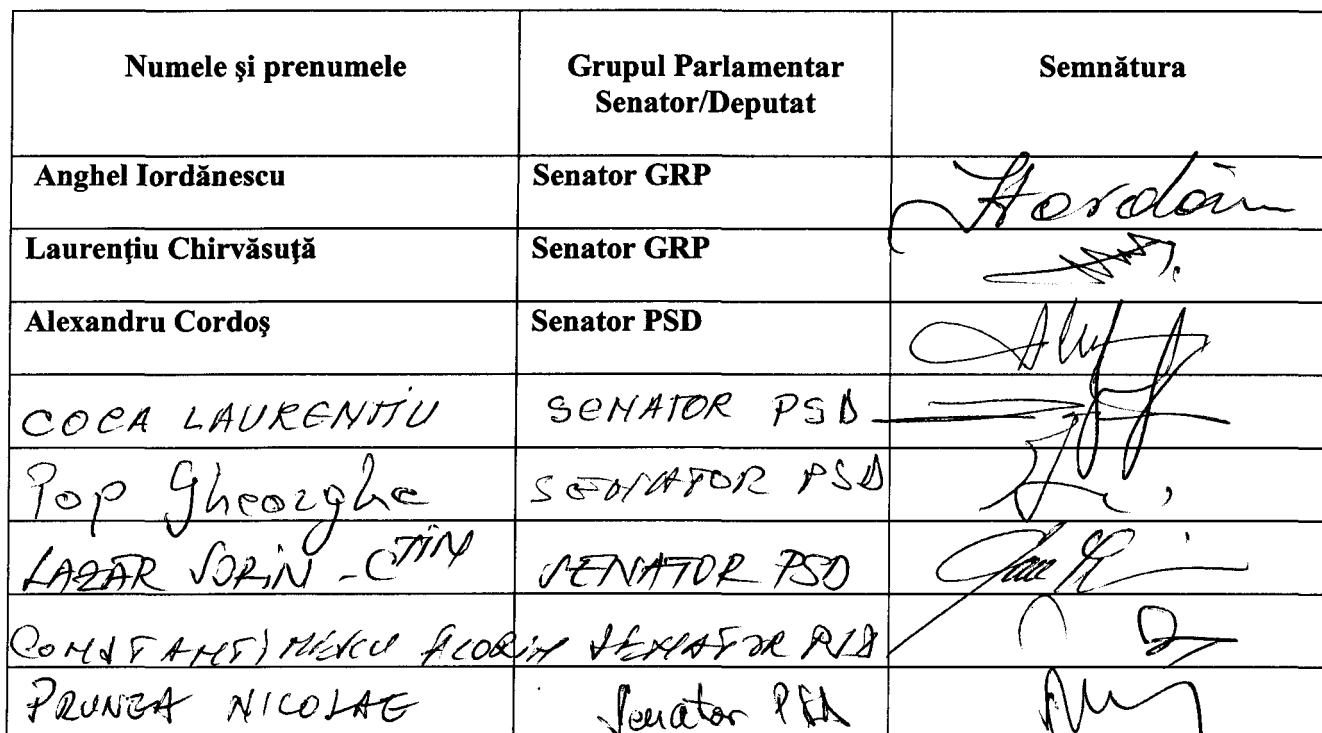 Numele şi prenumele Grupul Parlamentar Semnătura
Senator/Deputat
Anghel Iordănescu Senator GRP
Laurenţiu Chirvăsuţă Senator GRP
Alexandru Cordoş Senator PSD
COCA LAURENTIU SENATOR PSD
Pop Gheorghe SENATOR PSD
LAZĂR SORIN - CTIN SENATOR PSD
CONSTANTINESCU FLORIN SENATOR PSD
PRUNEA NICOLAE Senator PSD